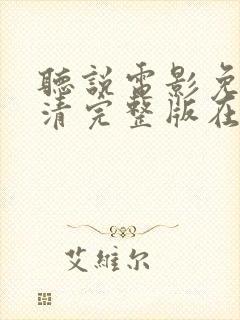 聽說電影免
清完整版在
艾維尔